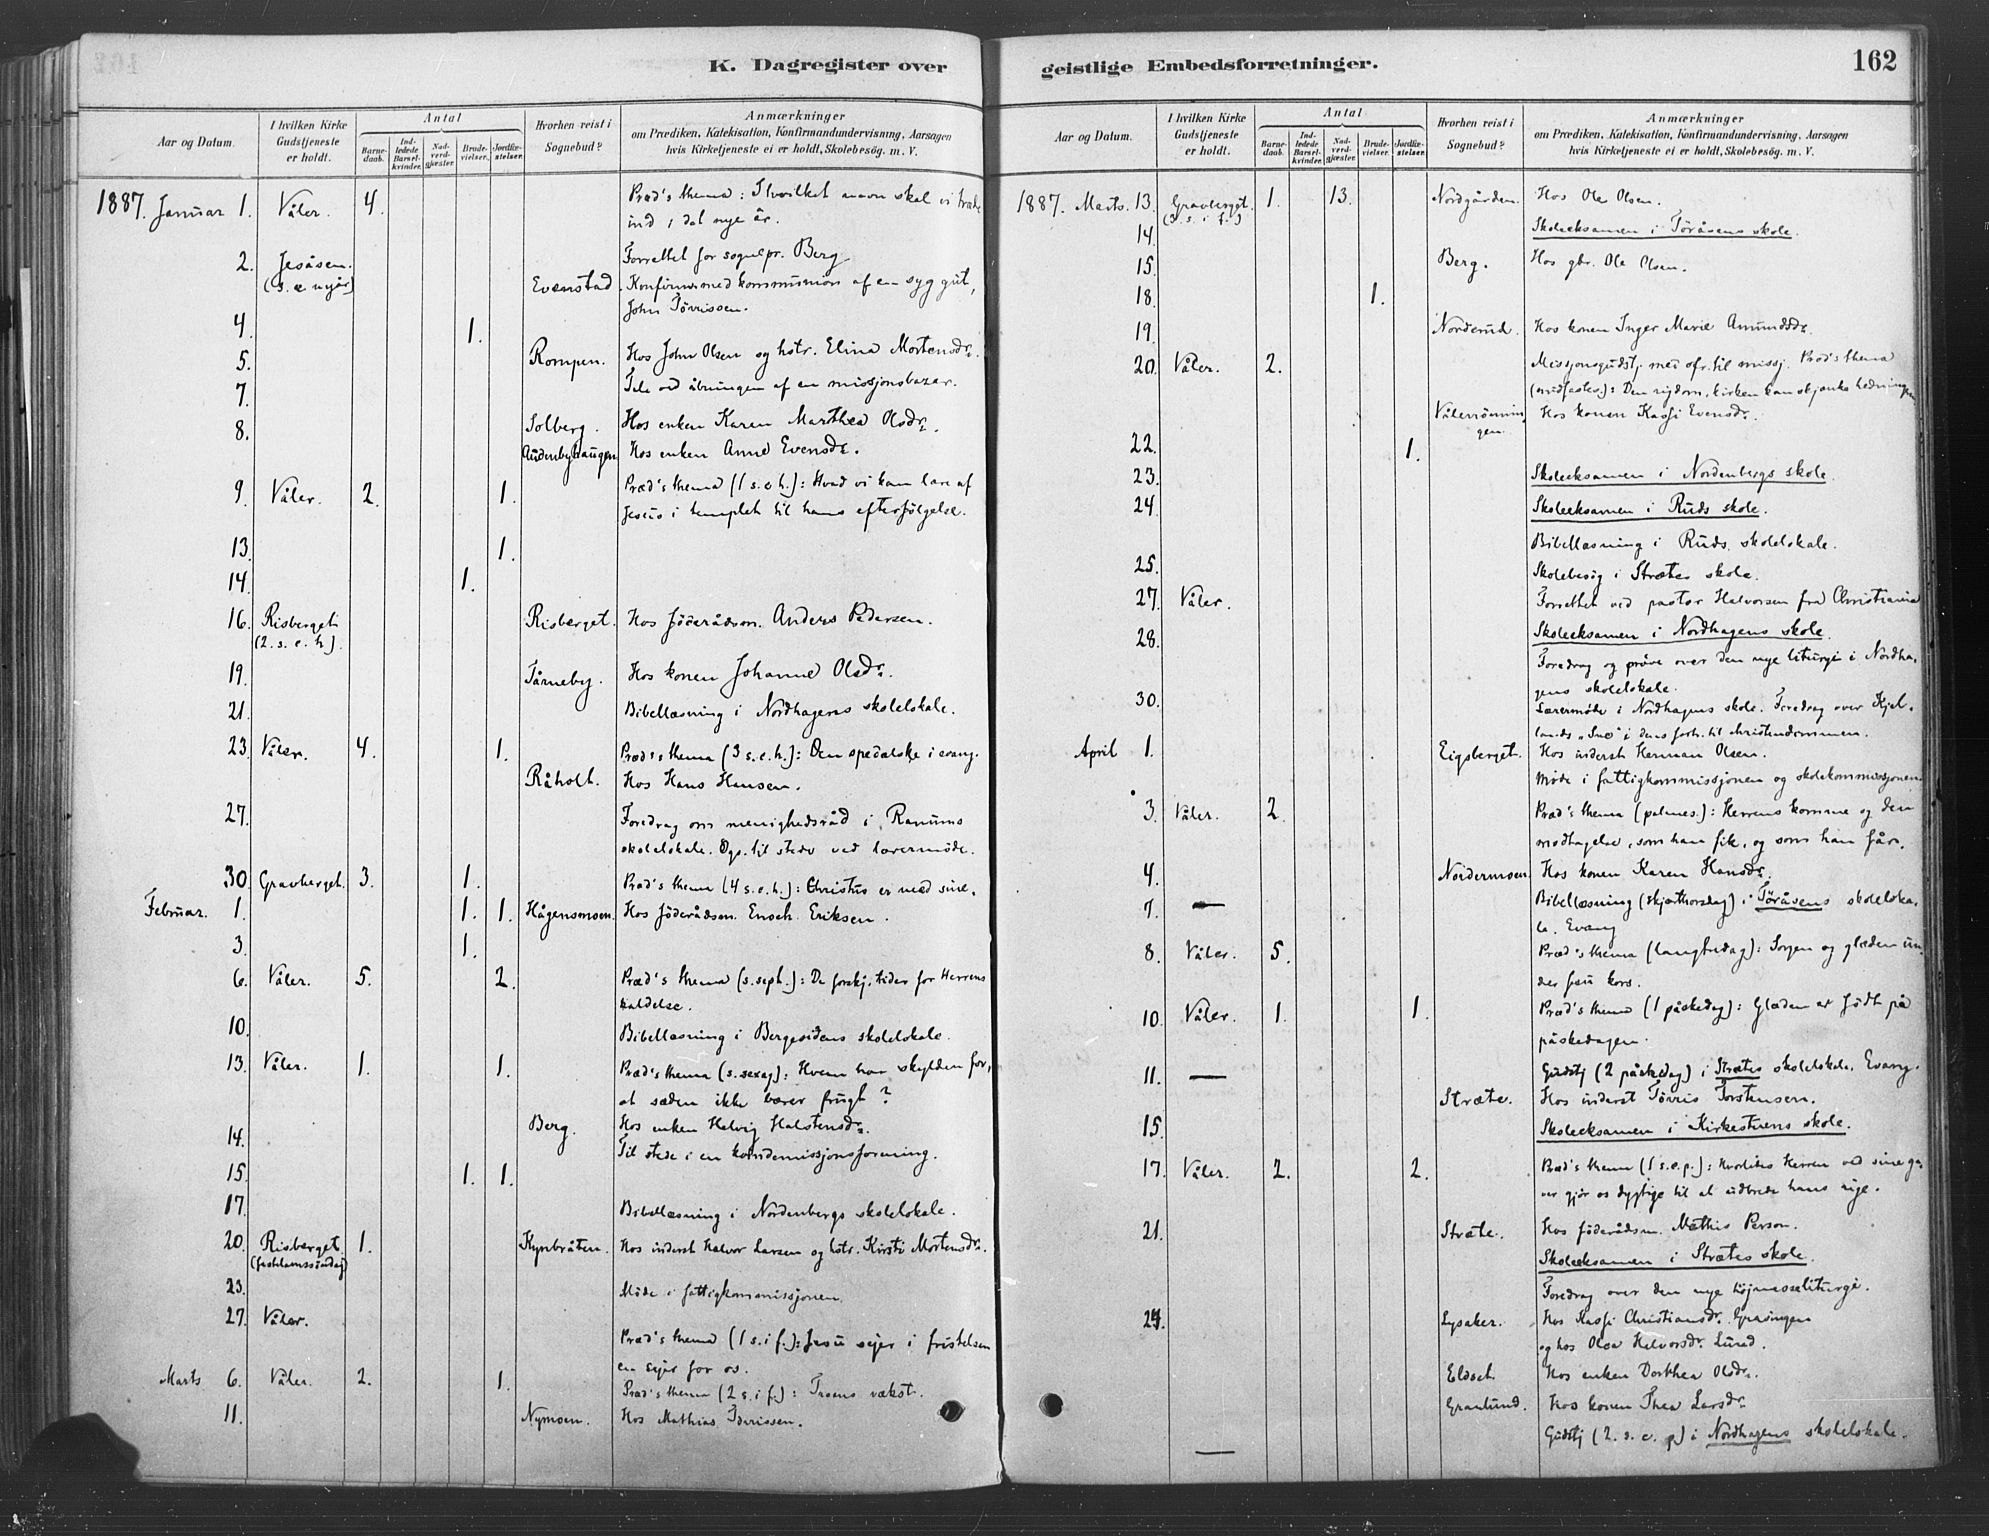 K. Dagregister over
Aar og Datum.
I hvilken Kirke Gudstjeneste er holdt.
Antal
Barne-daab.
Ind-ledede Barsel-kvinder.
Nad-verd-gjæster.
Brude-vielser.
Jordfæ-stelser.
Hvorhen reist i Sognebud?
Anmærkninger
om Prædiken, Katekisation, Konfirmandundervisning, Aarsagen
hvis Kirketjeneste ei er holdt, Skolebesøg. m. V.
1887. Januar 1. Våler. 4. Præd's thema: I hvilket navn skal vi træde
ind i det nye år.
2. Jesåsen. Forrettet for sognepr. Berg
(s. e. nyår) Evenstad. Konfirm. med kommunion af en syg gut,
John Törrissen.
4. 1.
5. Rompen. Hos John Olsen og hstr. Elina Mortensdr.
7. Tale ved åbningen af en missjonsbazar.
8. Solberg. Hos enken Karen Marthea Olsdr.
Audenbyhaugen Hos enken Anne Evensdr.
9. Våler. 2. 1. Præd's thema (1 s. e. h.): Hvad vi kan lære af
Jesus i templet til hans efterfölgelse.
13. 1.
14. 1.
16. Risberget Risberget. Hos föderådsm. Anders Pedersen.
(2. s. e. h.)
19. Tårneby. Hos konen Johanne Olsdr.
21. Bibellæsning i Nordhagens skolelokale.
23. Våler. 4. 1. Præd's thema (3 s. e. h.): Den spedalske i evang.
Råholt. Hos Hans Hansen.
27. Foredrag om menighedsråd i Ranums
skolelokale. Ogs. til stede ved lærermöde.
30. Gravberget. 3. 1. Præd's thema (4 s. e. h.): Christus er med sine.
Februar. 1. 1. 1. Hågensmoen. Hos föderådsm. Enoch Eriksen.
3. 1.
6. Våler. 5. 2. Præd's thema (s. sept.): De forskj. tider for Herrens
kaldelse.
10. Bibellæsning i Bergesidens skolelokale.
13. Våler. 1. 1. Præd's thema (s. sexag): Hvem har skylden for,
at sæden ikke bærer frugt?
14. Berg. Hos enken Helvig Halstensdr.
Til stede i en kvindemissjonsforening.
15. 1. 1.
17. Bibellæsning i Nordenbergs skolelokale.
20. Risberget 1. Kynbråten. Hos inderst Halvor Larsen og hstr. Kirsti Mortensdr.
(fastelavnssöndag)
23. Möde i fattigkommissjonen
27. Våler. Præd's thema (1 s. i f.): Jesu sejer i fristelsen
en sejer for os.
Marts 6. Våler. 2. 1. Præd's thema (2 s. i f.): Troens vækst.
11. Nymoen. Hos Mathias Törrissen.
geistlige Embedsforretninger. 162
Aar og Datum.
I hvilken Kirke Gudstjeneste er holdt.
Antal
Barne-daab.
Ind-ledede Barsel-kvinder.
Nad-verd-gjæster.
Brude-vielser.
Jordfæ-stelser.
Hvorhen reist i Sognebud?
Anmærkninger
om Prædiken, Katekisation, Konfirmandundervisning, Aarsagen
hvis Kirketjeneste ei er holdt, Skolebesøg. m. V.
1887. Marts. 13. Gravberget. 1. 13. Nordgården. Hos Ole Olsen.
(3. s. i f.)
14. Skoleeksamen i Töråsens skole.
15. Berg. Hos gbr. Ole Olsen.
18. 1.
19. Norderud. Hos konen Inger Marie Amundsdr.
20. Våler. 2. Missjonsgudstj. med ofr. til missj. Præd's thema
(midfastes.): Den rigdom, kirken kan skjænke hedningen
Vålerönningen. Hos konen Kassi Evensdr.
22. 1.
23. Skoleeksamen i Nordenbergs skole.
24. Skoleeksamen i Ruds skole.
Bibellæsning i Ruds skolelokale.
25. Skolebesög i Strætes skole.
27. Våler. Forrettet ved pastor Halvorsen fra Christiania
28. Skoleeksamen i Nordhagens skole.
Foredrag og pröve over den nye liturgi i Nordha-
gens skolelokale.
30. Lærermöde i Nordhagens skole. Foredrag over Kjel-
lands „Sne" i dens forh. til christendommen.
April 1. Eigsberget. Hos inderst Herman Olsen.
Möde i fattigkommissjonen og skolekommissjonen
3. Våler. 2. Præd's thema (palmes.): Herrens komme og den
modtagelse, som han fik, og som han får.
4. Nordermoen. Hos konen Karen Hansdr.
7. — Bibellæsning (skjærthorsdag) i Töråsens skoleloka-
le. Evang
8. Våler. 5. Præd's thema (langfredag): Sorgen og glæden un-
der Jesu kors.
10. Våler. 1. 1. Præd's thema (1 påskedag): Glæden er födt på
påskedagen.
11. — Gudstj (2 påskedag) i Strætes skolelokale. Evang.
Stræte. Hos inderst Törris Torstensen.
15. Skoleeksamen i Kirkestuens skole.
17. Våler. 2. 2. Præd's thema (1 s. e. p.): Hvorledes Herren ved sine ga-
ver gjör os dygtige til at udbrede hans rige.
21. Stræte. Hos föderådsm. Mathis Person.
Skoleeksamen i Strætes skole.
Foredrag over den nye höjmesseliturgi.
24. Lysaker. Hos Kassi Christiansdr.
og hos Olea Halvorsdr. Lund.
Eldset. Hos enken Dorthea Olsdr.
Granlund. Hos konen Thea Larsdr.
— Gudstj (2. s. e. p) i Nordhagens skolelokale.